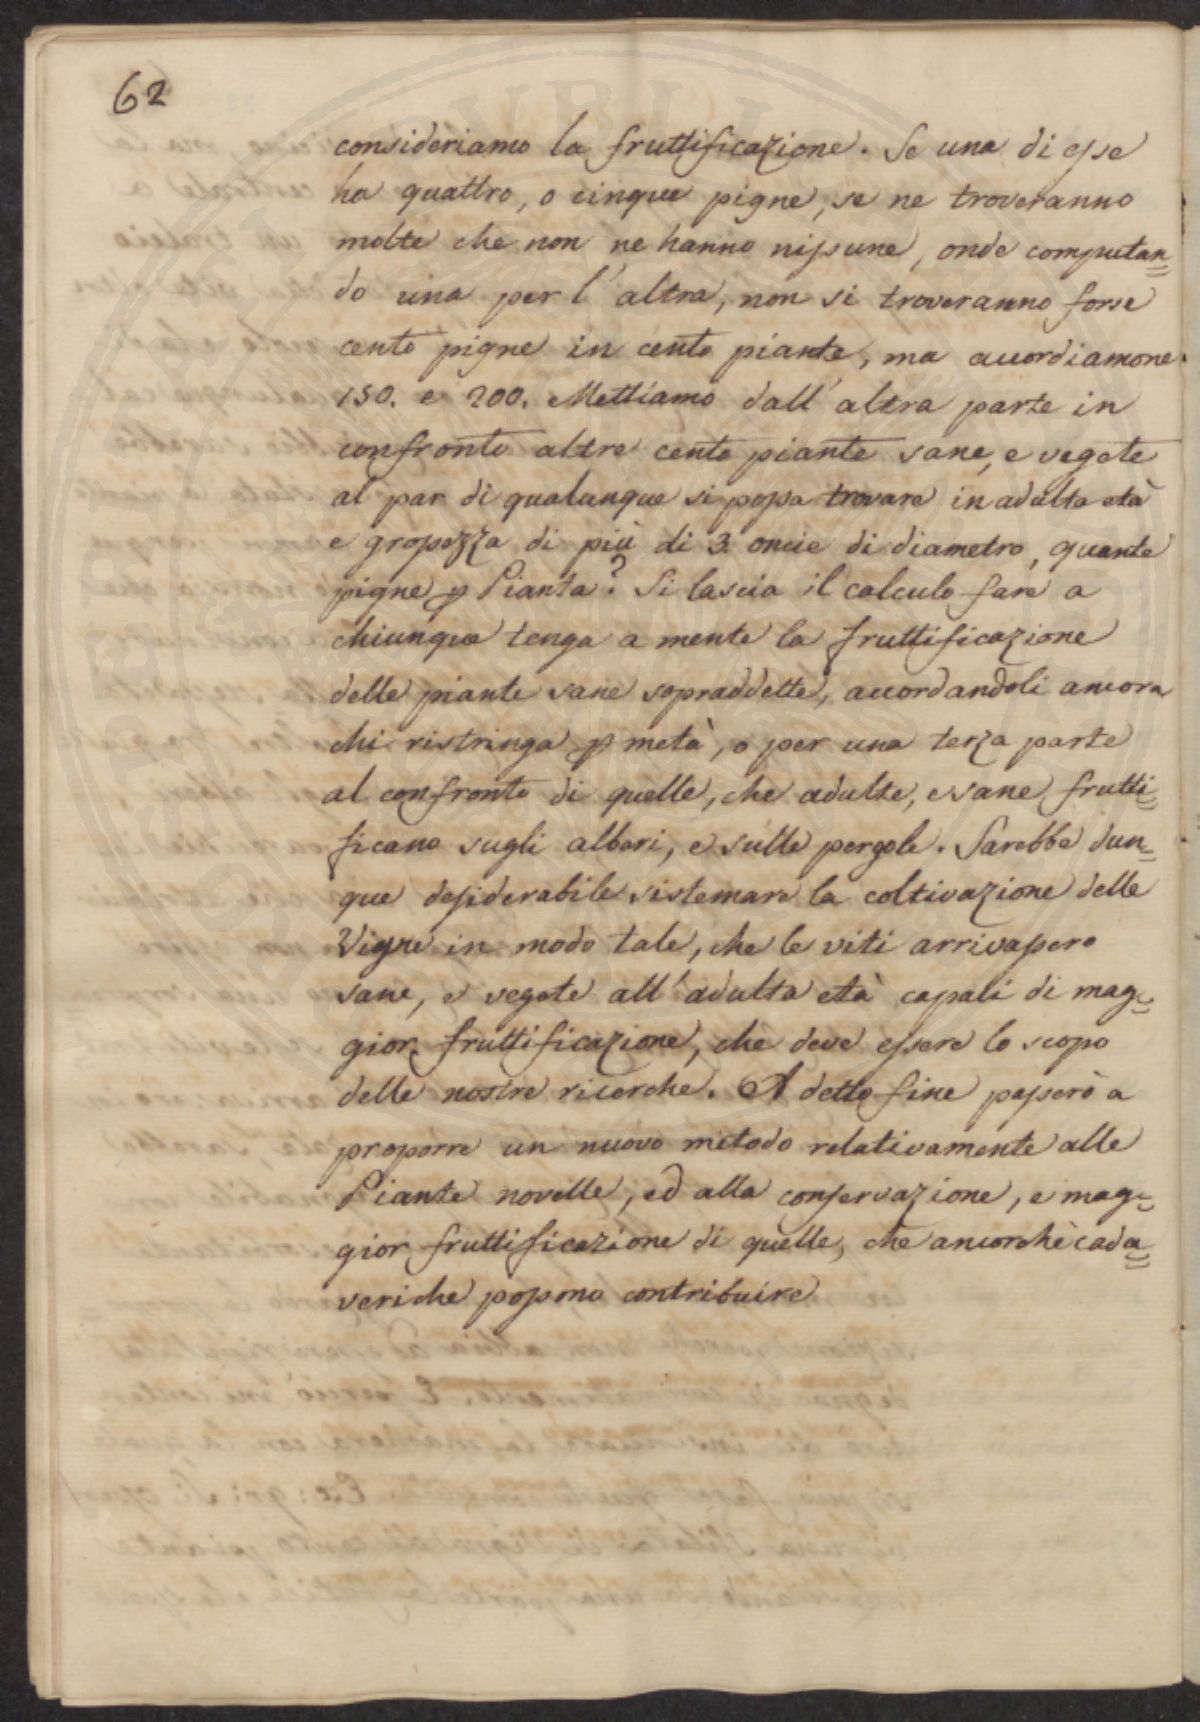 62
consideriamo la fruttificazione. Se una di esse
ha quattro, o cinque pigne, se ne troveranno
molte che non ne hanno nissune, onde computan=
do una per l'altra, non si troveranno forse
cento pigne in cento piante, ma accordiamone
150. e 200. Mettiamo dall'altra parte in
confronto altre cento piante sane, e vegete
al par di qualunque si possa trovare in adulta età
e grossezza di più di 3 oncie di diametro, quante
pigne p Pianta? Si lascia il calculo fare a
chiunque tenga a mente la fruttificazione
delle piante sane sopraddette, accordandoli ancora
chi ristringa p metà, o per una terza parte
al confronto di quelle, che adulte, e sane frutti=
ficano sugli alberi, e sulle pergole. Sarebbe dun=
que desiderabile sistemare la coltivazione delle
Vigne in modo tale, che le viti arrivassero
sane, e vegete all'adulta età capali di mag=
gior fruttificazione, che deve essere lo scopo
delle nostre ricerche. A detto fine passerò a
proporre un nuovo metodo relativamente alle
Piante novelle, ed alla conservazione, e mag=
gior fruttificazione di quelle, che ancorchè cada=
veriche possono contribuire